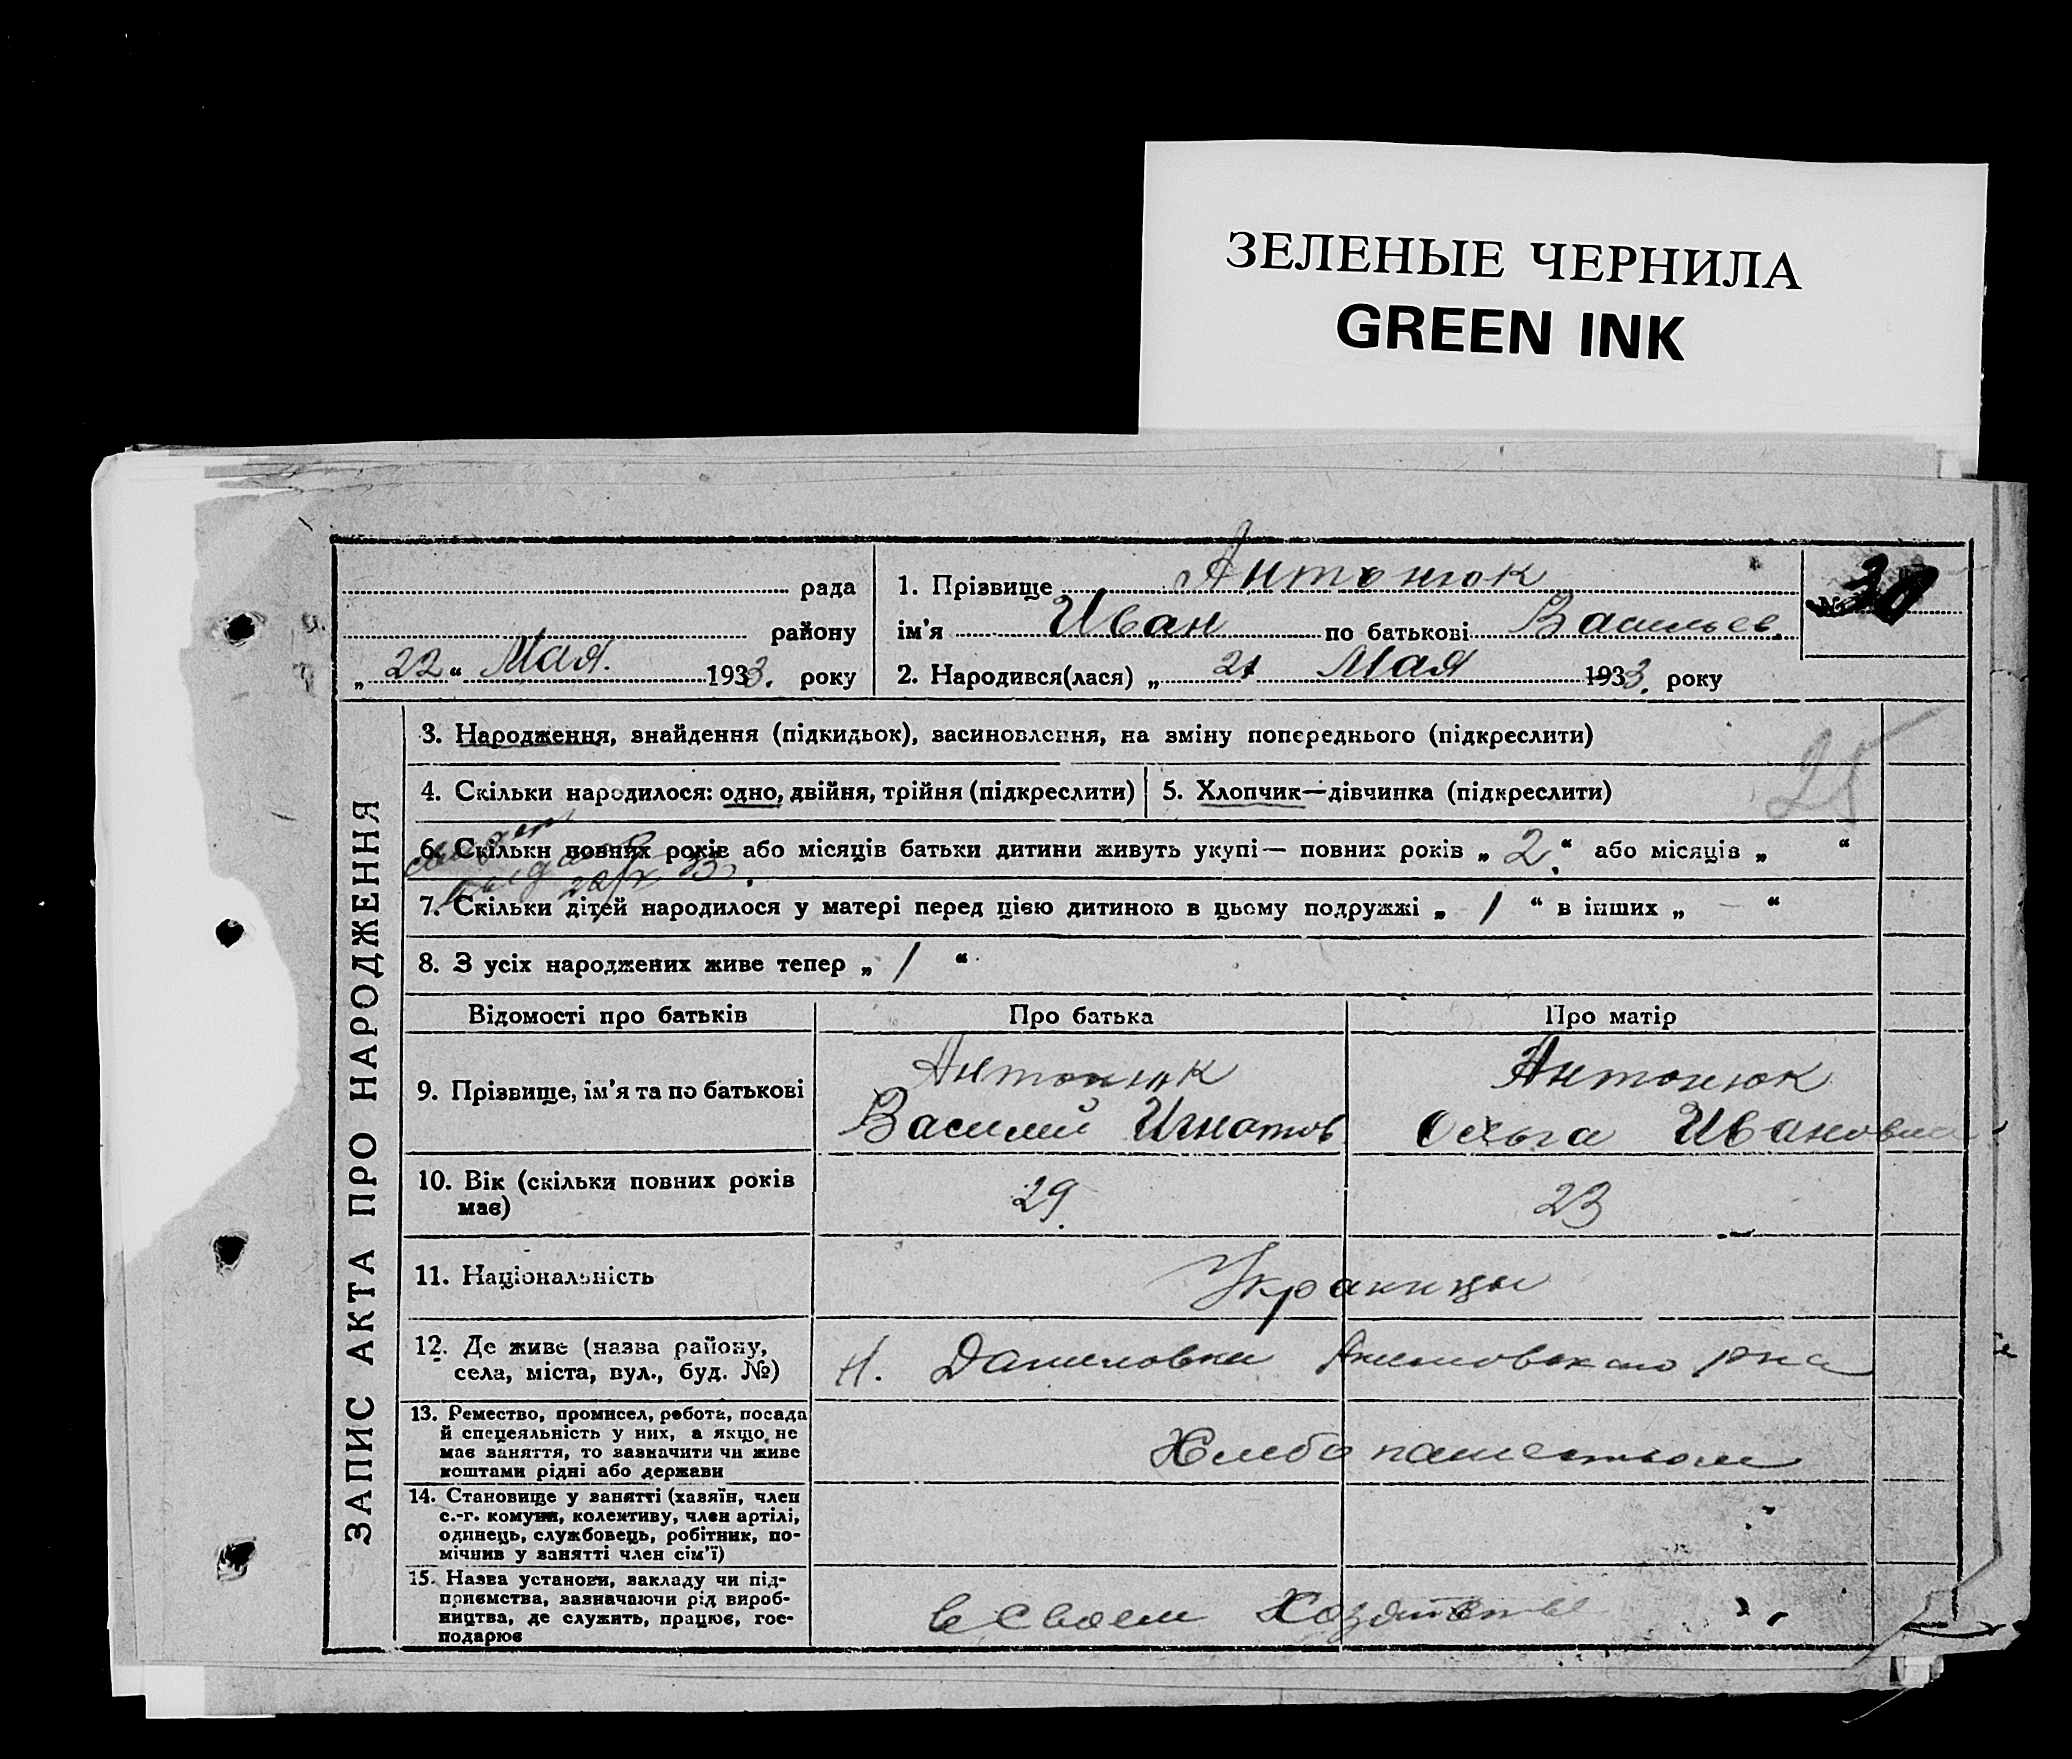 ЗЕЛЕНЫЕ ЧЕРНИЛА
GREEN INK
рада
району
„ 22 “ Мая. 1933. року
1. Прізвище Антонюк
ім'я Иван по батькові Васильев.
2. Народився(лася) „ 21 Мая 1933. року
30
ЗАПИС АКТА ПРО НАРОДЖЕННЯ
3. Народження, знайдення (підкидьок), засиновлення, на зміну попереднього (підкреслити)
25
4. Скільки народилося: одно, двійня, трійня (підкреслити)
5. Хлопчик—дівчинка (підкреслити)
6. Скільки повних років або місяців батьки дитини живуть укупі — повних років „ 2. “ або місяців „ “
7. Скільки дітей народилося у матері перед цією дитиною в цьому подружжі „ 1 “ в інших „ — “
8. З усіх народжених живе тепер „ 1 “
Відомості про батьків
Про батька
Про матір
9. Прізвище, ім'я та по батькові
Антонюк
Василий Игнатов
Антонюк
Ольга Ивановна
10. Вік (скільки повних років
має)
29.
23
11. Національність
Украинцы
12. Де живе (назва району,
села, міста, вул., буд. №)
Н. Даниловка Акимовского рна
13. Ремество, промисел, робота, посада
й спецеяльність у них, а якщо не
має заняття, то зазначити чи живе
коштами рідні або держави
Хлебопашеством
14. Становище у занятті (хазяїн, член
с.-г. комуни, колективу, член артілі,
одинець, службовець, робітник, по-
мічник у занятті член сім'ї)
15. Назва установи, закладу чи під-
приємства, зазначаючи рід вироб-
ництва, де служить, працює, гос-
подарює
в своем хозяйстве